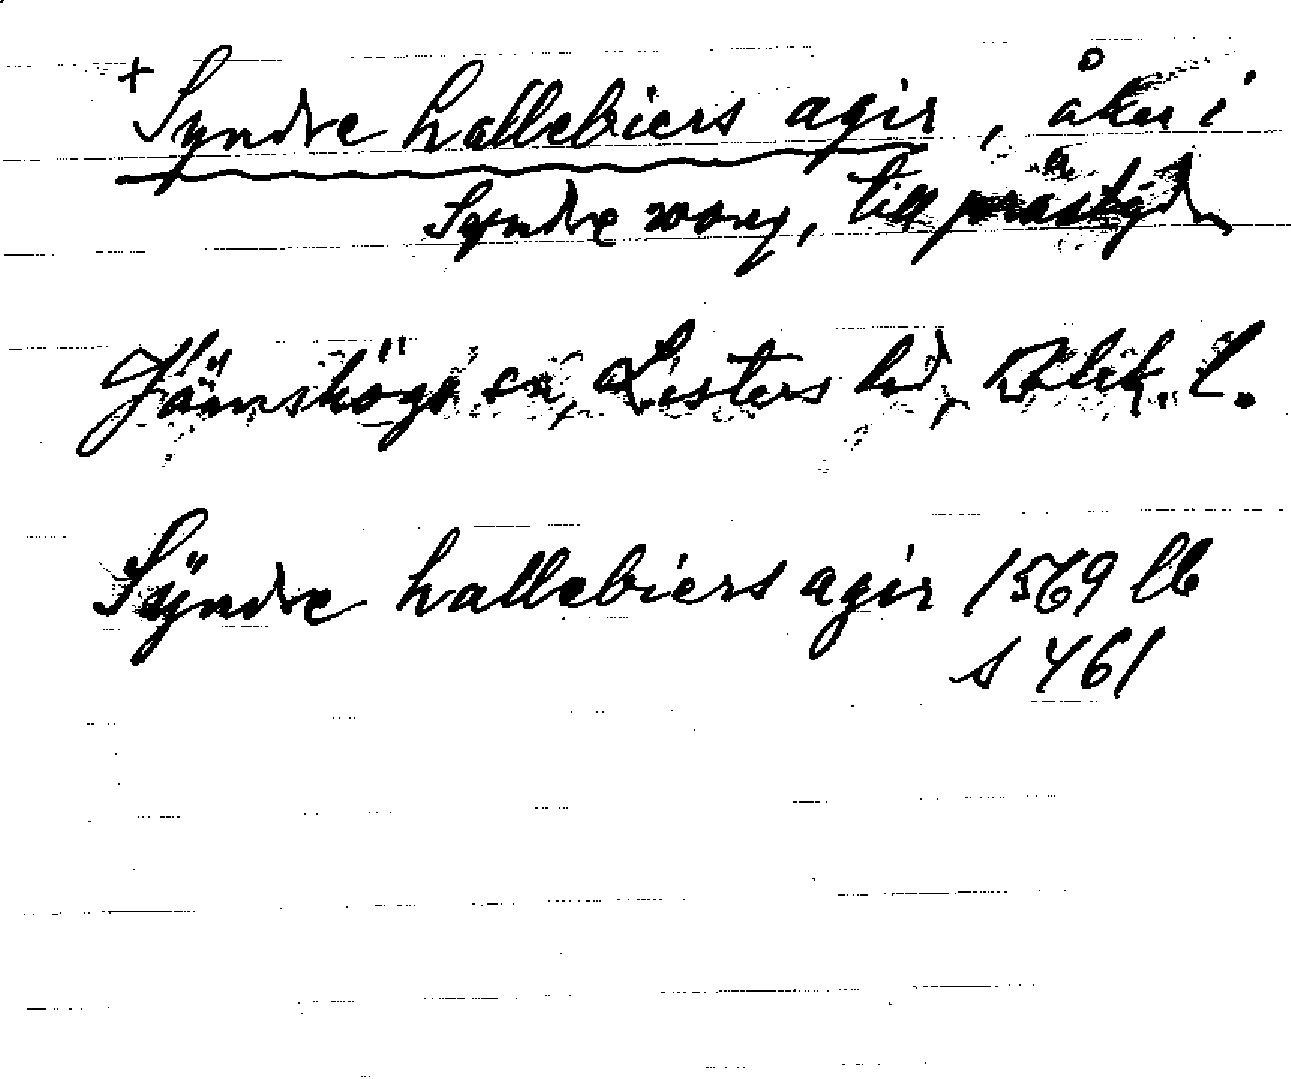 + Syndre hallebiers agir, åker i
Syndre wong, till prästgdn
Jämshögs sn, Listers hd, Blek. l.
Sÿndre hallebiers agir 1569 lb
s 461